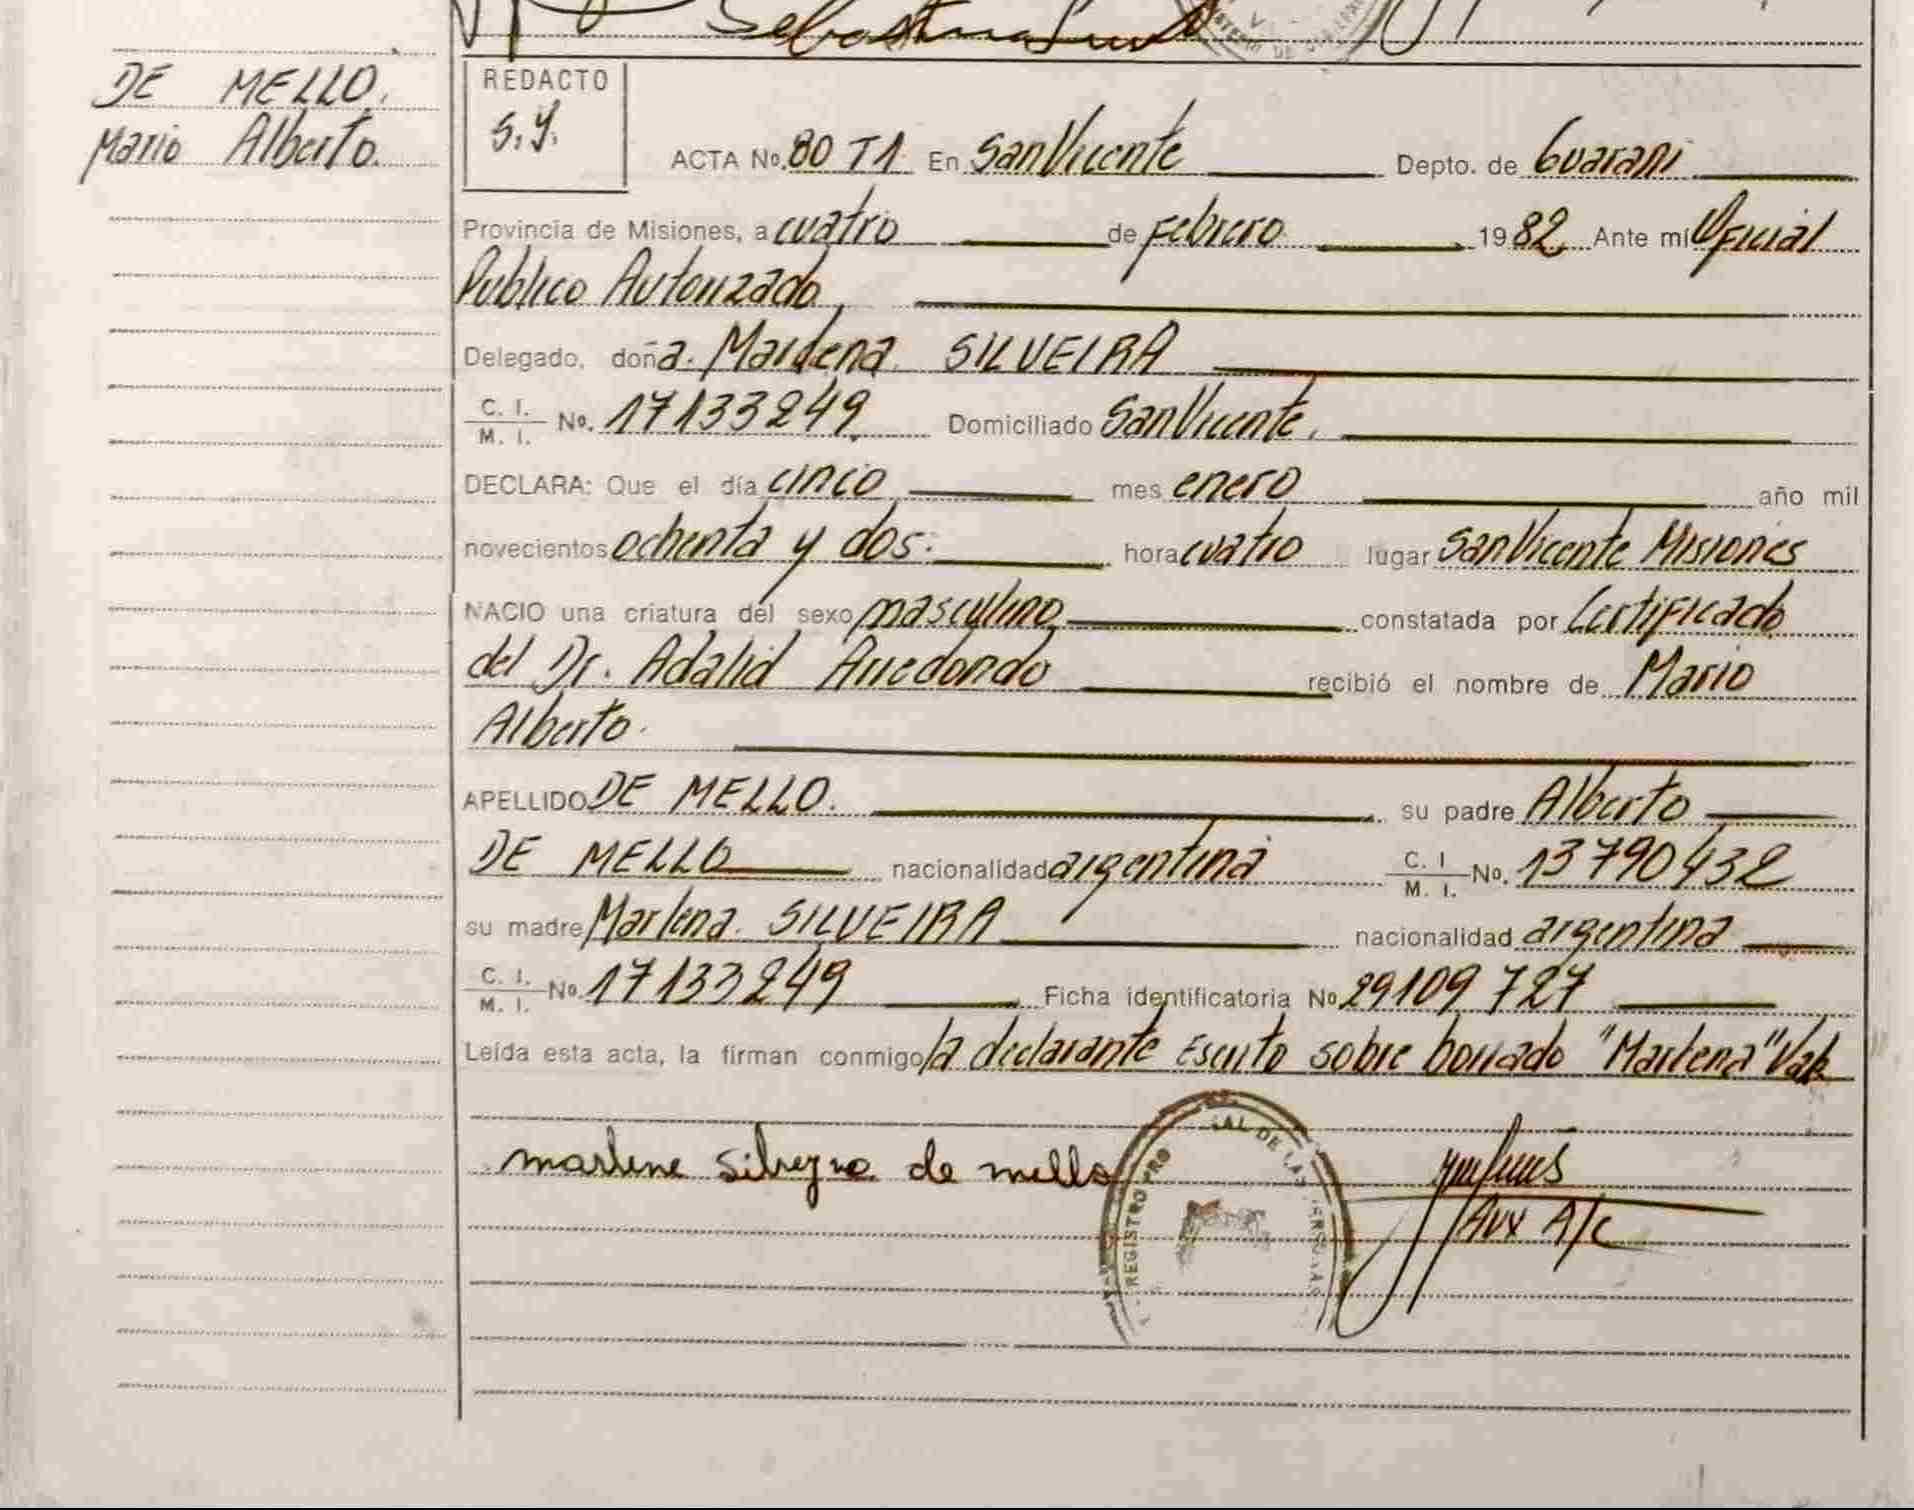 DE MELLO,
Mario Alberto.
REDACTO
S.Y.
ACTA No. 80 T1 En San Vicente Depto. de Guarani
Provincia de Misiones, a cuatro de Febrero 1982, Ante mí Oficial
Publico Autorizado,
Delegado, doña. Marlena SILVEIRA
C. I. / M. I. No. 17133249, Domiciliado San Vicente,
DECLARA: Que el día cinco mes enero año mil
novecientos ochenta y dos. hora cuatro lugar San Vicente Misiones
NACIO una criatura del sexo masculino, constatada por Certificado
del Dr. Adalid Arredondo recibió el nombre de Mario
Alberto.
APELLIDO DE MELLO. su padre Alberto
DE MELLO nacionalidad argentina C. I / M. I. No. 13790432
su madre Marlena. SILVEIRA nacionalidad argentina
C. I. / M. I. No. 17133249 Ficha identificatoria No 29109727
Leída esta acta, la firman conmigo la declarante Escrito sobre borrado "Marlena" Vale
marlene de mello
REGISTRO PRO AL DE LAS
Aux A/C